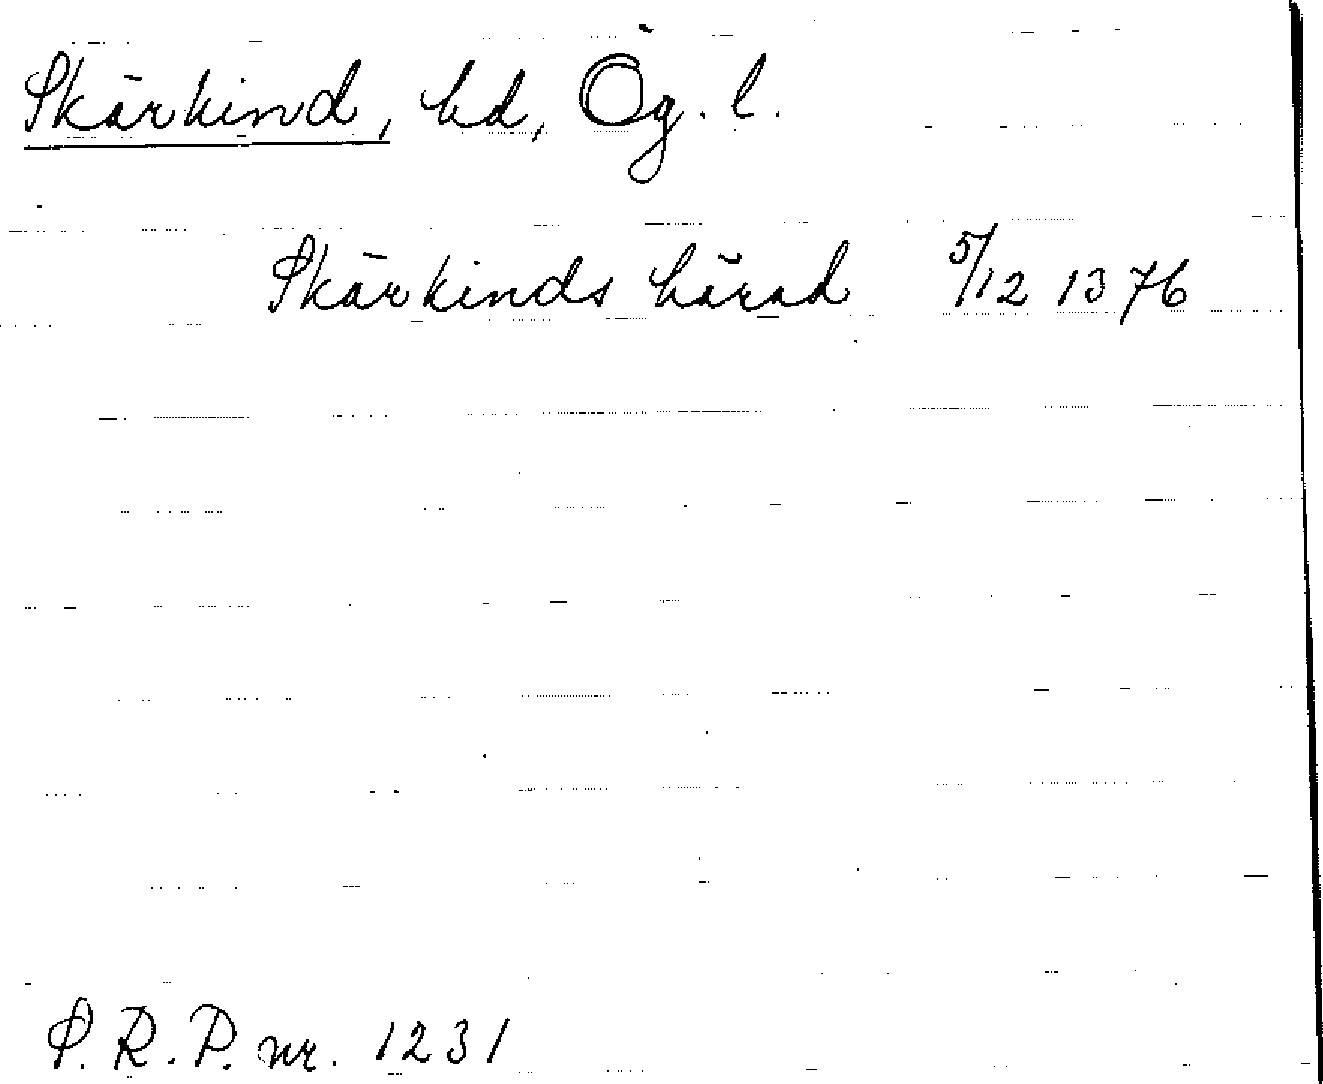 Skärkind, hd, Ög. l.
Skärkinds härad 5/12 1376
S.R.P. nr. 1231